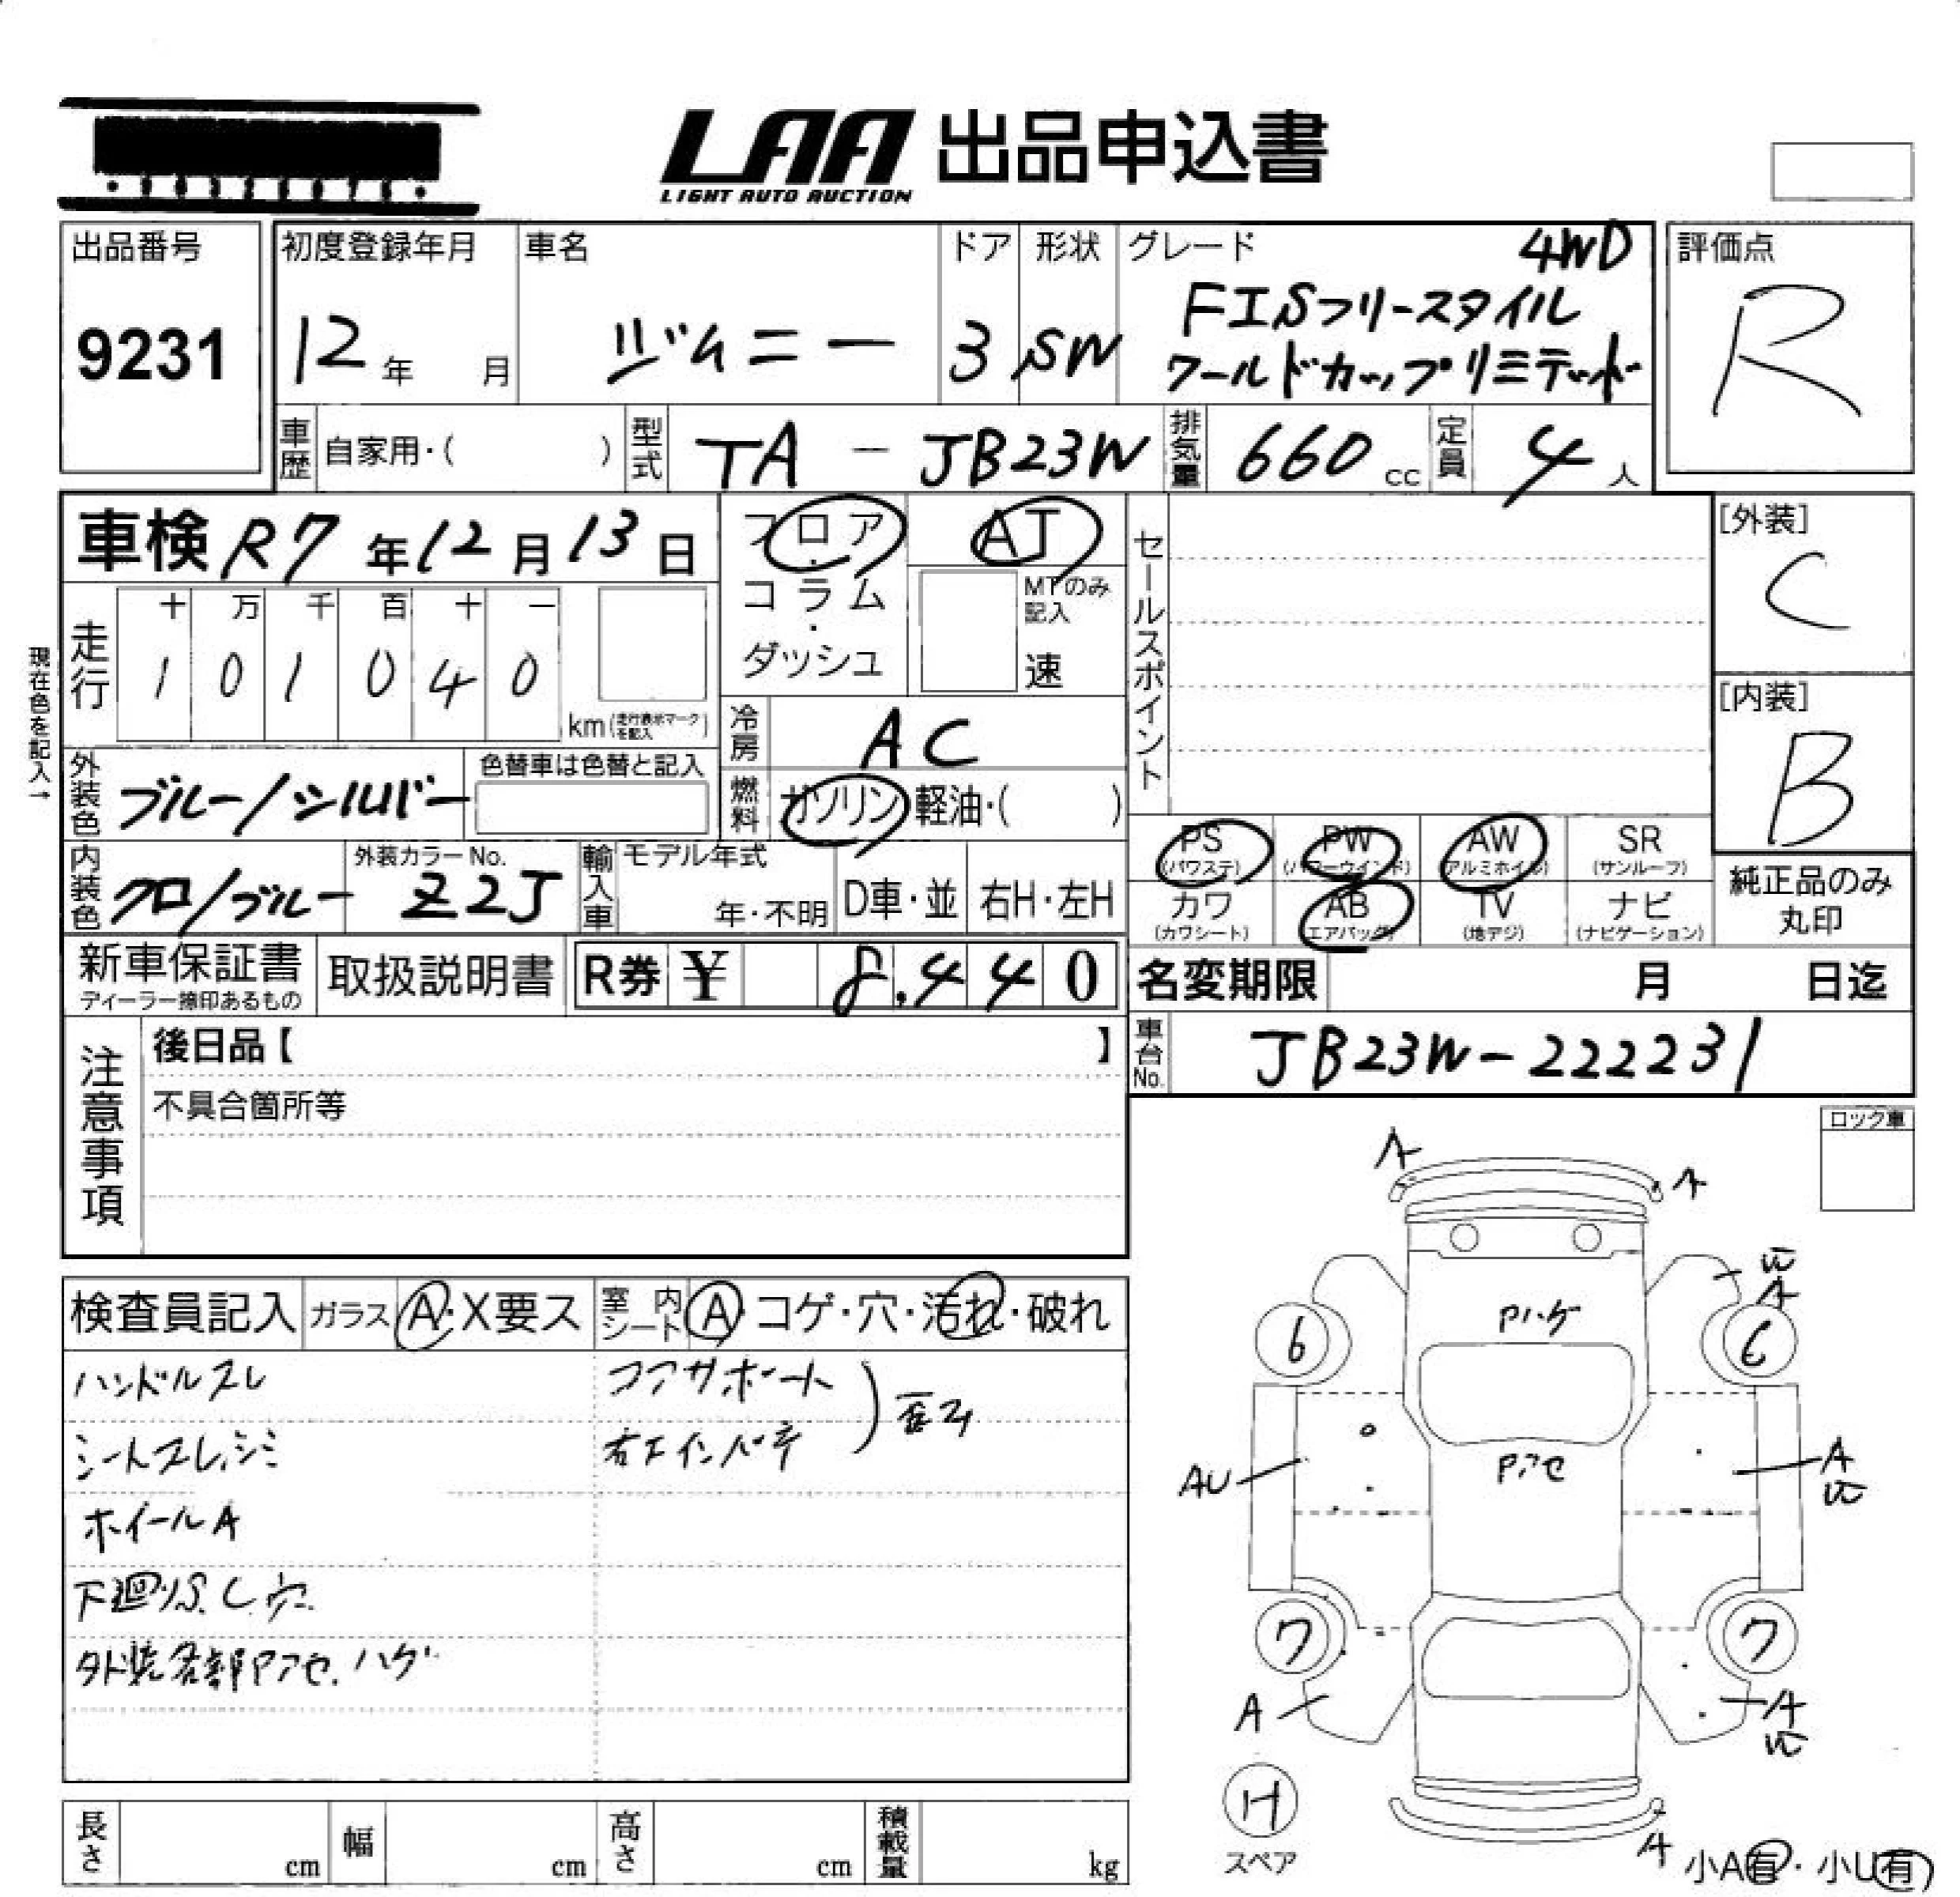 LAA 出品申込書
LIGHT AUTO AUCTION
出品番号
9231
初度登録年月
12年 月
車名
ジムニー
ドア
3
形状
SW
グレード
4WD
FISフリースタイル
ワールドカップリミテッド
評価点
R
車歴 自家用・( )
型式 TA - JB23W
排気量 660 cc
定員 4 人
車検 R7年12月13日
フロア・コラム・ダッシュ
AT
MTのみ記入
速
セールスポイント
[外装]
C
[内装]
B
現在色を記入→
走行
十 万 千 百 十 一
1 0 1 0 4 0
km(走行表示マークを記入)
冷房 AC
外装色 ブルー/シルバー
色替車は色替と記入
燃料 ガソリン・軽油・( )
内装色 クロ/ブルー
外装カラーNo.
Z2J
輸入車
モデル年式
年・不明
D車・並
右H・左H
PS (パワステ)
PW (パワーウインド)
AW (アルミホイル)
SR (サンルーフ)
カワ (カワシート)
AB (エアバッグ)
TV (地デジ)
ナビ (ナビゲーション)
純正品のみ
丸印
新車保証書
ディーラー捺印あるもの
取扱説明書
R券 ¥ 8,440
名変期限 月 日迄
車台No. JB23W-222231
注意事項
後日品【 】
不具合箇所等
ロック車
検査員記入 ガラス A・X要ス 室内シート A・コゲ・穴・汚れ・破れ
ハンドルスレ
シートスレ、シミ
ホイールA
下廻りS.C.穴
外装各部Pアセ.ハゲ
コアサポート
右下インパネ
A
A
A
Pハゲ
6
6
Pアセ
AU
A
7
7
A
A
H
スペア
A
小A有・小U有
長さ cm
幅 cm
高さ cm
積載量 kg